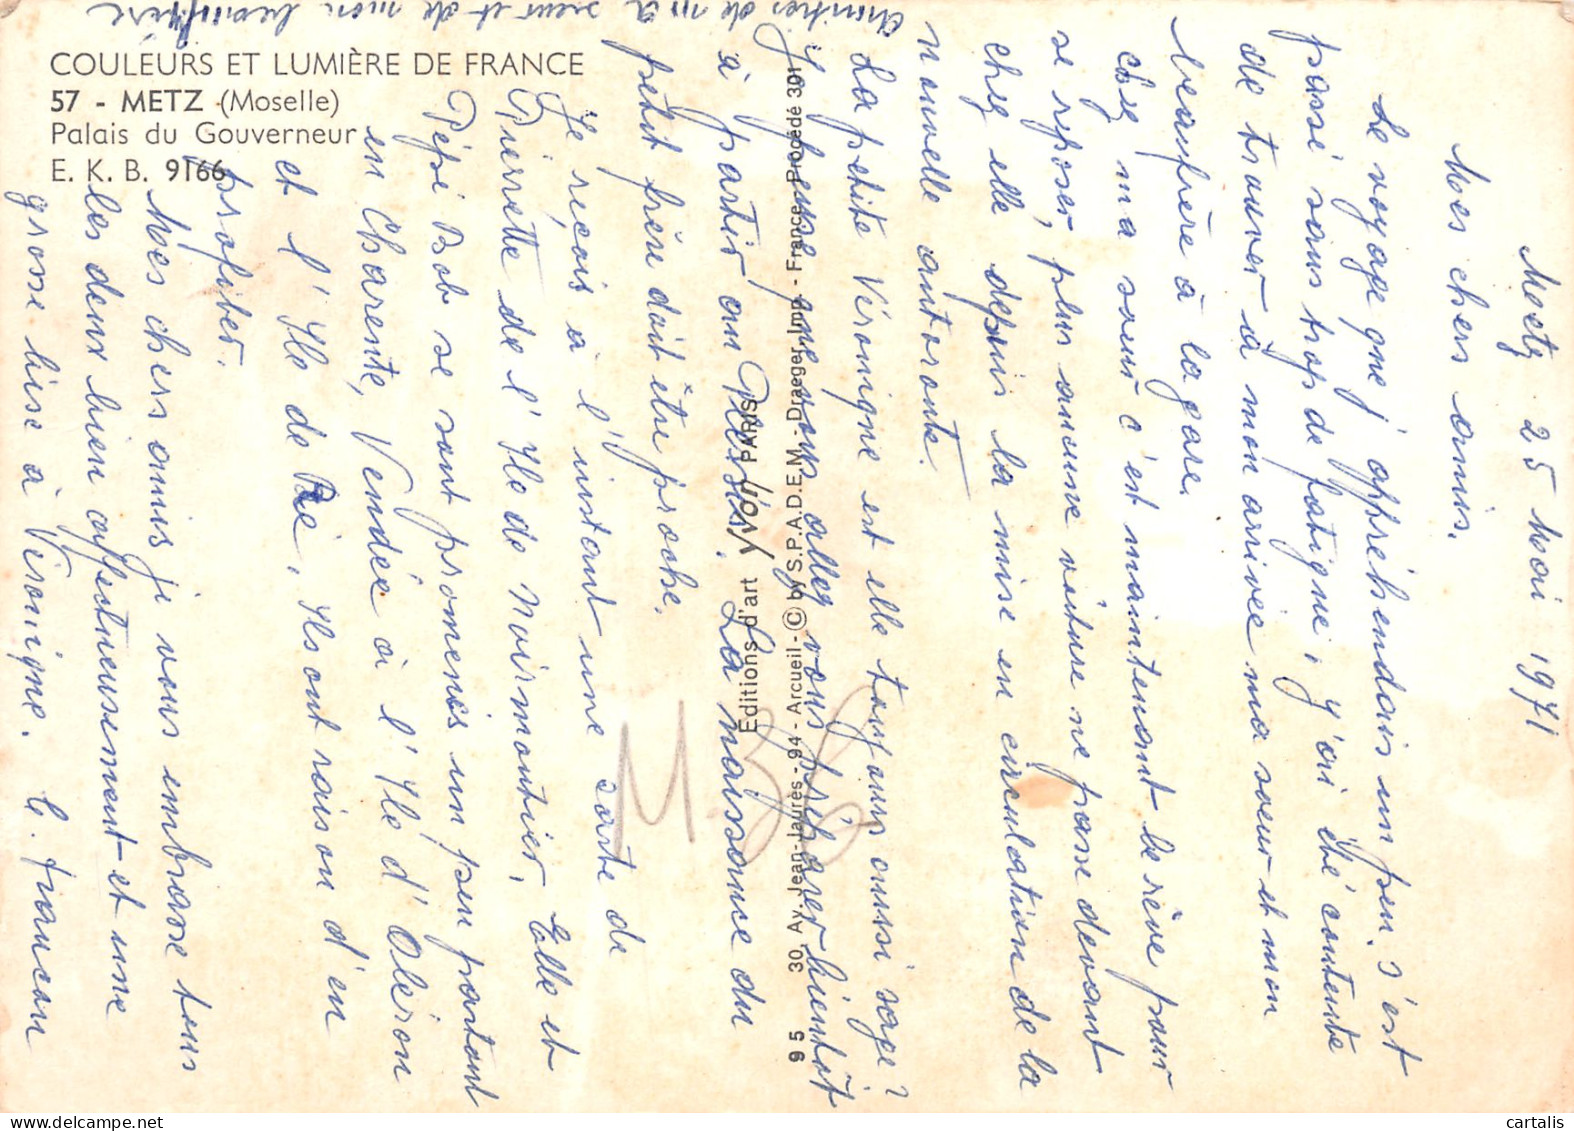 COULEURS ET LUMIÈRE DE FRANCE
57 - METZ (Moselle)
Palais du Gouverneur
E. K. B. 9166
Metz 25 Mai 1971
Mes chers amis.
Le voyage que j'appréhendais un peu s'est
passé sans trop de fatigue, j'ai été contente
de trouver à mon arrivée ma sœur et mon
beaufrère à la gare.
Chez ma sœur c'est maintenant le rêve pour
se reposer, plus aucune voiture ne passe devant
chez elle depuis la mise en circulation de la
nouvelle autoroute.
La petite Véronique est elle toujours aussi sage?
Je pense que vous allez vous préparer bientôt
à partir au Plessis. La naissance du
petit frère doit être proche.
Je reçois à l'instant une carte de
Pierrette de l'Ile de Noirmoutier, Elle et
Pépé Bob se sont promenés un peu partout
en Charente, Vendée à l'Ile d'Oléron
et l'Ile de Ré, Ils ont raison d'en
profiter.
Mes chers amis je vous embrasse tous
les deux bien affectueusement et une
grosse bise à Véronique. le
amitiés de ma sœur et de mon beaufrère
Editions d'art YVON PARIS
95 30, Av. Jean-Jaurès - 94 - Arcueil - © by S.P.A.D.E.M. - Draeger, Imp. - France. Procédé 301
M. 36
cartalis